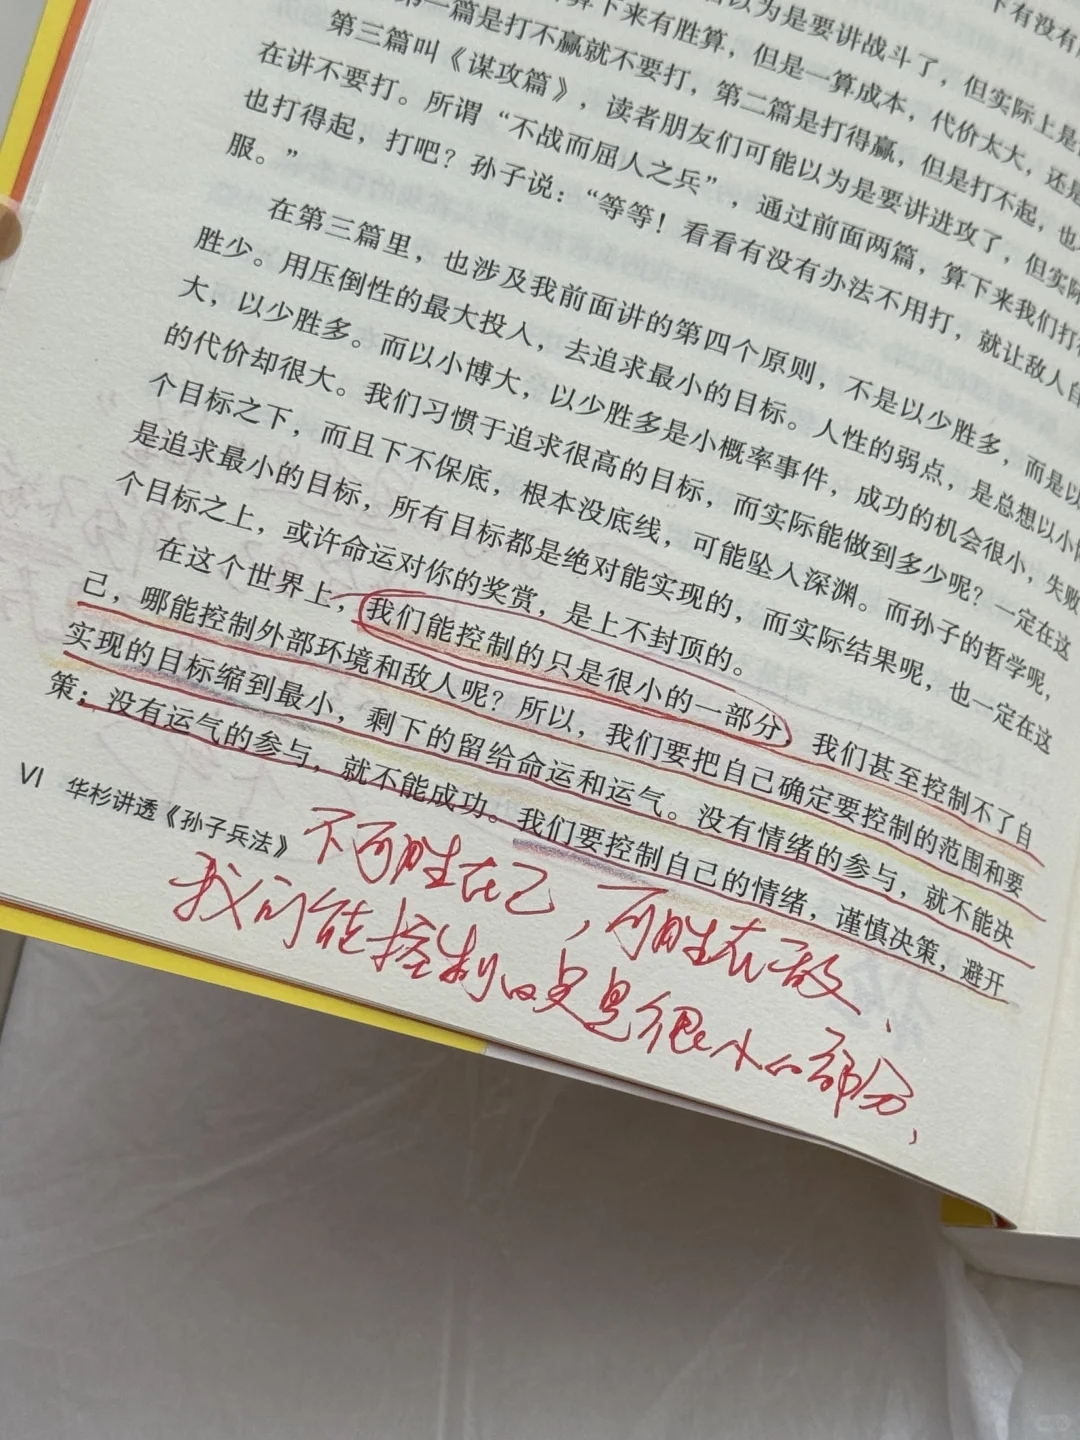 下有没有
以为是要讲战斗了，但实际上是
算下来有胜算，但是一算成本，代价太大，还是
第一篇是打不赢就不要打，第二篇是打得赢，但是打不起，也
第三篇叫《谋攻篇》，读者朋友们可能以为是要讲进攻了，但实际
在讲不要打。所谓“不战而屈人之兵”，通过前面两篇，算下来我们打得
也打得起，打吧？孙子说：“等等！看看有没有办法不用打，就让敌人自
服。”
在第三篇里，也涉及我前面讲的第四个原则，不是以少胜多，而是以
胜少。用压倒性的最大投入，去追求最小的目标。人性的弱点，是总想以小博
大，以少胜多。而以小博大，以少胜多是小概率事件，成功的机会很小，失败
的代价却很大。我们习惯于追求很高的目标，而实际能做到多少呢？一定在这
个目标之下，而且下不保底，根本没底线，可能坠入深渊。而孙子的哲学呢，
是追求最小的目标，所有目标都是绝对能实现的，而实际结果呢，也一定在这
个目标之上，或许命运对你的奖赏，是上不封顶的。
在这个世界上，我们能控制的只是很小的一部分，我们甚至控制不了自
己，哪能控制外部环境和敌人呢？所以，我们要把自己确定要控制的范围和要
实现的目标缩到最小，剩下的留给命运和运气。没有情绪的参与，就不能决
策；没有运气的参与，就不能成功。我们要控制自己的情绪，谨慎决策，避开
VI 华杉讲透《孙子兵法》
不可胜在己，可胜在敌、
我们能控制的只是很小的部分，